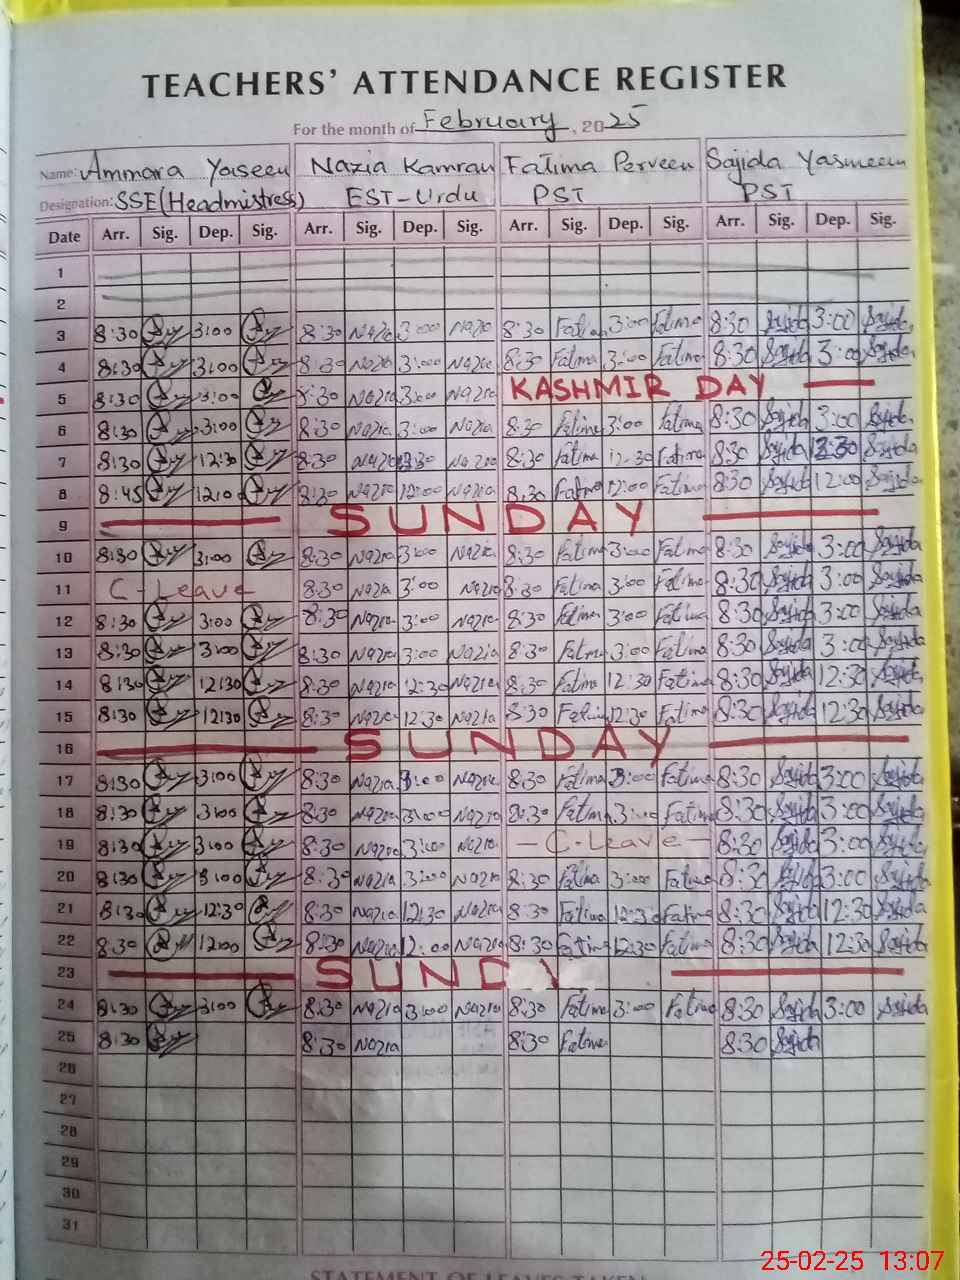 TEACHERS' ATTENDANCE REGISTER
For the month of February, 2025
Name: Ammara Yaseen Nazia Kamran Fatima Perveen Sajida Yasmeen
Designation: SSE (Headmistress) EST-Urdu PST PST
Date Arr. Sig. Dep. Sig. Arr. Sig. Dep. Sig. Arr. Sig. Dep. Sig. Arr. Sig. Dep. Sig.
1
2
3 8:30 3:00 8:30 Nazia 3:00 Nazia 8:30 Fatima 3:00 Fatima 8:30 Sajida 3:00 Sajida
4 8:30 3:00 8:30 Nazia 3:00 Nazia 8:30 Fatima 3:00 Fatima 8:30 Sajida 3:00 Sajida
5 8:30 3:00 8:30 Nazia 3:00 Nazia KASHMIR DAY
6 8:30 3:00 8:30 Nazia 3:00 Nazia 8:30 Fatima 3:00 Fatima 8:30 Sajida 3:00 Sajida
7 8:30 12:30 8:30 Nazia Nazia 8:30 Fatima 12-30 Fatima 8:30 Sajida 12:30 Sajida
8 8:45 8:30 Nazia 12:00 Nazia 8:30 Fatima 12:00 Fatima 8:30 Sajida 12:00 Sajida
9 SUNDAY
10 8:30 3:00 8:30 Nazia 3:00 Nazia 8:30 Fatima 3:00 Fatima 8:30 Sajida 3:00 Sajida
11 C-Leave 8:30 Nazia 3:00 Nazia 8:30 Fatima 3:00 Fatima 8:30 Sajida 3:00 Sajida
12 8:30 3:00 8:30 Nazia 3:00 Nazia 8:30 Fatima 3:00 Fatima 8:30 Sajida 3:00 Sajida
13 8:30 3:00 8:30 Nazia 3:00 Nazia 8:30 Fatima 3:00 Fatima 8:30 Sajida 3:00 Sajida
14 8:30 12:30 8:30 Nazia 12:30 Nazia 8:30 Fatima 12:30 Fatima 8:30 Sajida 12:30 Sajida
15 8:30 12:30 8:30 Nazia 12:30 Nazia 8:30 Fatima 12:30 Fatima 8:30 Sajida 12:30 Sajida
16 SUNDAY
17 8:30 3:00 8:30 Nazia 3:00 Nazia 8:30 Fatima 3:00 Fatima 8:30 Sajida 3:00 Sajida
18 8:30 3:00 8:30 Nazia 3:00 Nazia 8:30 Fatima 3:00 Fatima 8:30 Sajida 3:00 Sajida
19 8:30 3:00 8:30 Nazia 3:00 Nazia - C-Leave 8:30 Sajida 3:00 Sajida
20 8:30 3:00 8:30 Nazia 3:00 Nazia 8:30 Fatima 3:00 Fatima 8:30 Sajida 3:00 Sajida
21 8:30 12:30 8:30 Nazia 12:30 Nazia 8:30 Fatima 12:30 Fatima 8:30 Sajida 12:30 Sajida
22 8:30 12:00 8:30 Nazia 12:00 Nazia 8:30 Fatima 12:30 Fatima 8:30 Sajida 12:30 Sajida
23 SUND
24 8:30 3:00 8:30 Nazia 3:00 Nazia 8:30 Fatima 3:00 Fatima 8:30 Sajida 3:00 Sajida
25 8:30 8:30 Nazia 8:30 Fatima 8:30 Sajida
26
27
28
29
30
31
STATEMENT OF LEAVES TAKEN
25-02-25 13:07